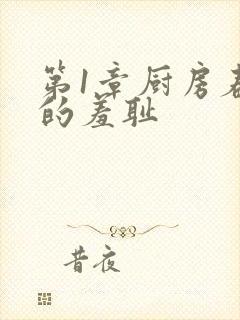 第1章厨房
的羞耻
昔夜